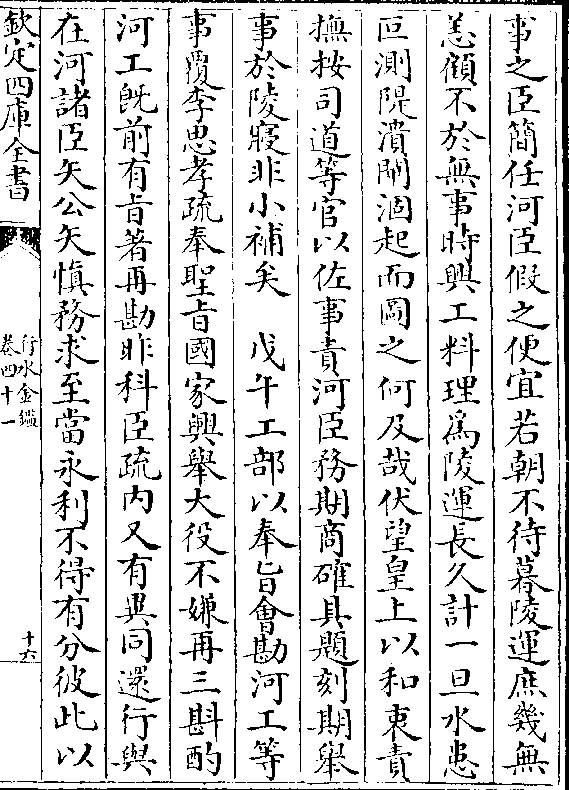 事之臣簡任河臣假之便宜若朝不待暮陵運庶幾無
恙顧不於無事時興工料理爲陵運長久計一旦水患
叵測隄潰閘涸起而圖之何及哉伏望皇上以和衷責
撫按司道等官以佐事責河臣務期商確具題刻期舉
事於陵寢非小補矣　戊午工部以奉旨會勘河工等
事覆李思孝疏奉聖旨國家興舉大役不嫌再三斟酌
河工旣前有旨著再勘昨科臣疏内又有異同還行與
在河諸臣矢公矢愼務求至當永利不得有分彼此以
欽定四庫全書
行水金鑑
卷四十一
十六